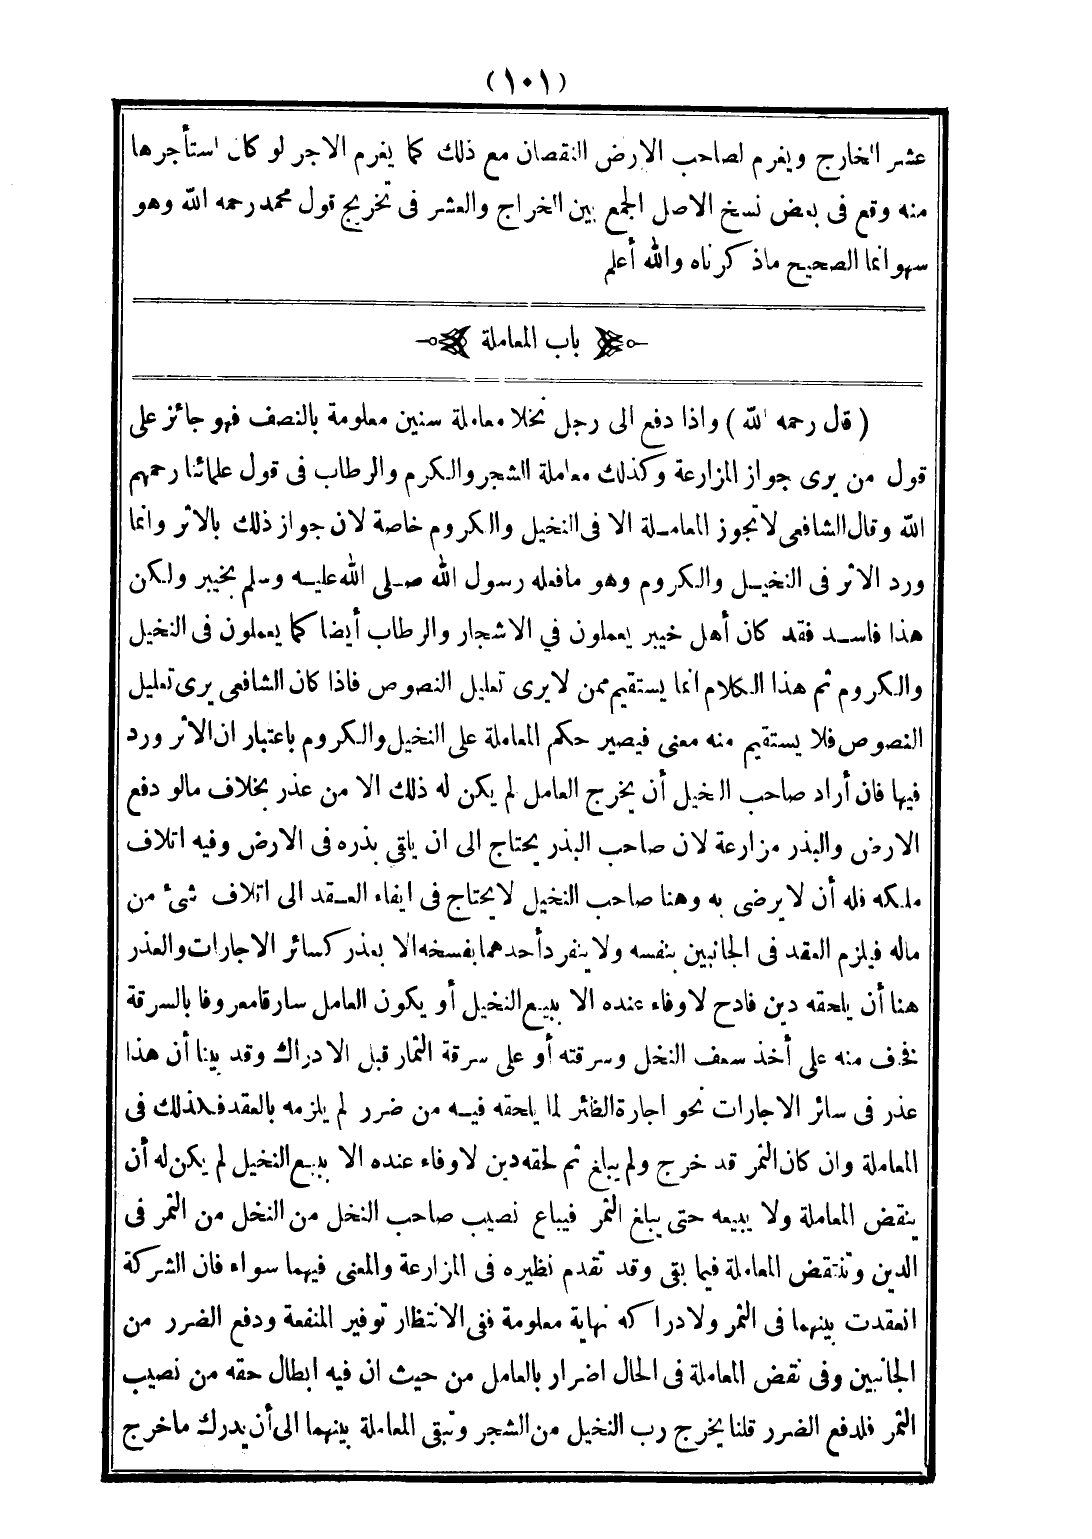 (١٠١)
عشر الخارج ويغرم لصاحب الارض النقصان مع ذلك كما يغرم الاجر لو كان استأجرها
منه وقع فى بعض نسخ الاصل الجمع بين الخراج والعشر فى تخريج قول محمد رحمه الله وهو
سهو انما الصحيح ماذكرناه والله أعلم
باب المعاملة
( قال رحمه الله ) واذا دفع الى رجل نخلا معاملة سنين معلومة بالنصف فهو جائز على
قول من يرى جواز المزارعة وكذلك معاملة الشجر والكرم والرطاب فى قول علمائنا رحمهم
الله وقال الشافعى لا تجوز المعاملة الا فى النخيل والكروم خاصة لان جواز ذلك بالاثر وانما
ورد الاثر فى النخيل والكروم وهو مافعله رسول الله صلى الله عليه وسلم بخيبر ولكن
هذا فاسد فقد كان أهل خيبر يعملون في الاشجار والرطاب أيضا كما يعملون فى النخيل
والكروم ثم هذا الكلام انما يستقيم ممن لا يرى تعليل النصوص فاذا كان الشافعى يرى تعليل
النصوص فلا يستقيم منه معنى فيصير حكم المعاملة على النخيل والكروم باعتبار ان الاثر ورد
فيها فان أراد صاحب النخيل أن يخرج العامل لم يكن له ذلك الا من عذر بخلاف مالو دفع
الارض والبذر مزارعة لان صاحب البذر يحتاج الى ان يلقي بذره فى الارض وفيه اتلاف
ملكه فله أن لا يرضى به وهنا صاحب النخيل لا يحتاج فى ايفاء العقد الى اتلاف شئ من
ماله فيلزم العقد فى الجانبين بنفسه ولا ينفرد أحدهما بفسخه الا بعذر كسائر الاجارات والعذر
هنا أن يلحقه دين فادح لا وفاء عنده الا ببيع النخيل أو يكون العامل سارقا معروفا بالسرقة
فخرف منه على أخذ سعف النخل وسرقته أو على سرقة الثمار قبل الادراك وقد بينا أن هذا
عذر فى سائر الاجارات نحو اجارة الظئر لما يلحقه فيه من ضرر لم يلزمه بالعقد فكذلك فى
المعاملة وان كان الثمر قد خرج ولم يبلغ ثم لحقه دين لا وفاء عنده الا ببيع النخيل لم يكن له أن
ينقض المعاملة ولا يبيعه حتى يبلغ الثمر فيباع نصيب صاحب النخل من النخل من الثمر فى
الدين وتنتقض المعاملة فيما بقى وقد تقدم نظيره فى المزارعة والمعنى فيهما سواء فان الشركة
انعقدت بينهما فى الثمر ولادراكه نهاية معلومة ففى الانتظار توفير المنفعة ودفع الضرر من
الجانبين وفى نقض المعاملة فى الحال اضرار بالعامل من حيث ان فيه ابطال حقه من نصيب
الثمر فلدفع الضرر قلنا يخرج رب النخيل من الشجر وتبقى المعاملة بينهما الى أن يدرك ماخرج